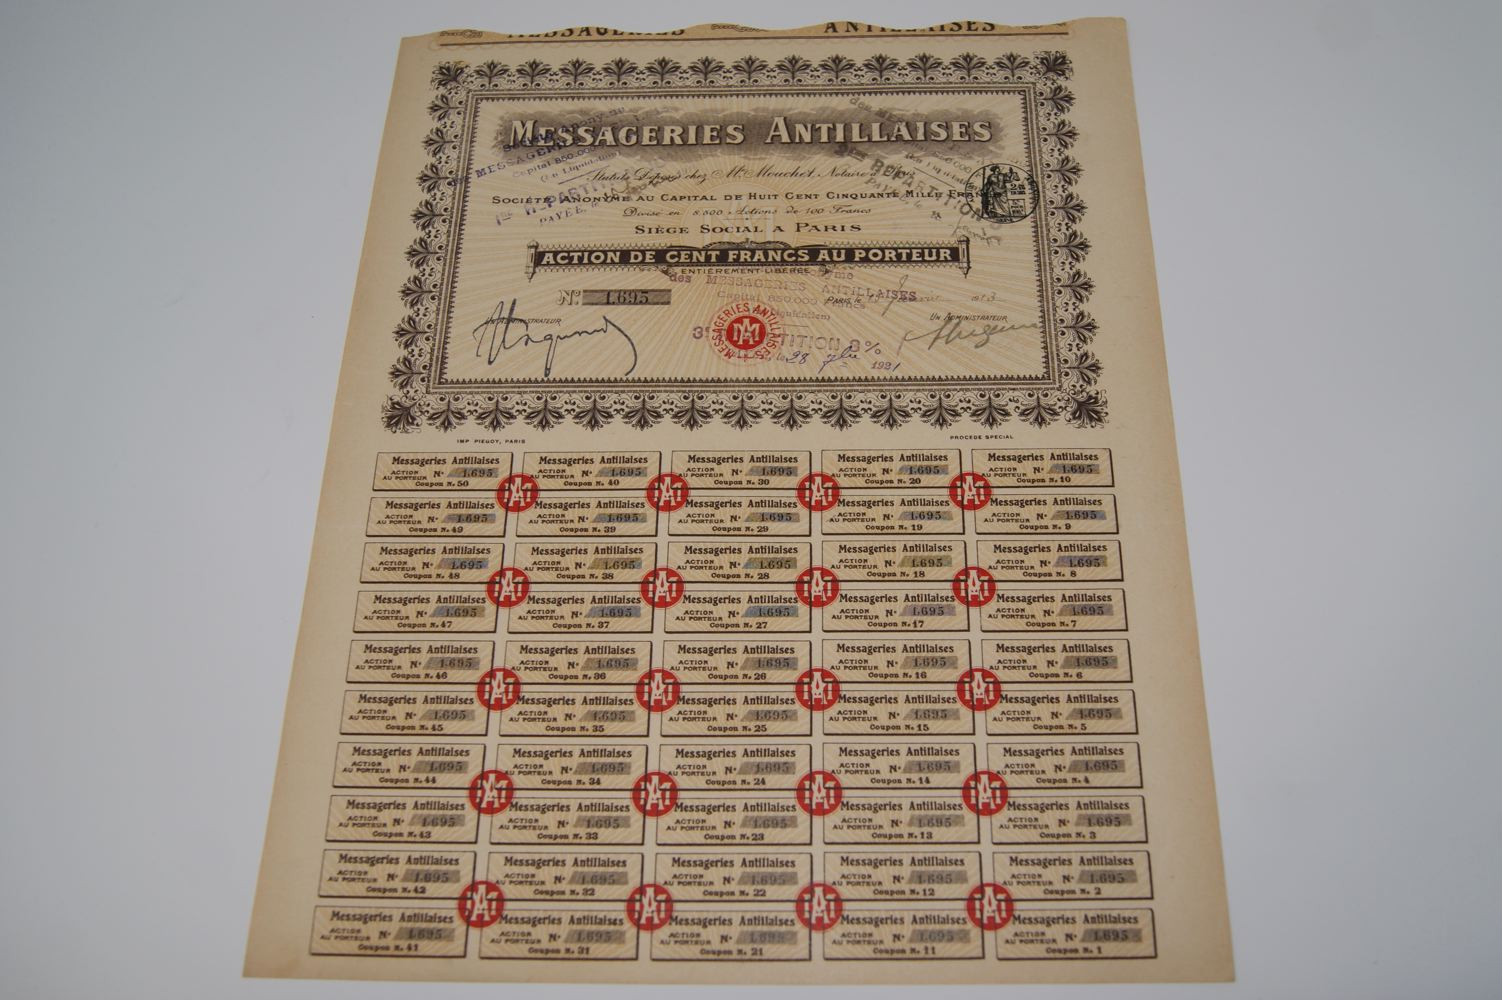 MESSAGERIES ANTILLAISES
MESSAGERIES ANTILLAISES
Statuts Déposés chez Me Mouchet, Notaire à Paris
SOCIÉTÉ ANONYME AU CAPITAL DE HUIT CENT CINQUANTE MILLE FRANCS
Divisé en 8.500 Actions de 100 Francs
SIÈGE SOCIAL A PARIS
ACTION DE CENT FRANCS AU PORTEUR
ENTIÈREMENT LIBÉRÉE
No 1.695
PARIS, le
UN ADMINISTRATEUR
UN ADMINISTRATEUR
MESSAGERIES ANTILLAISES
MA
MESSAGERIES
Capital 850.000
(en Liquidation)
PAYÉE, le
RÉPARTITION
des MESSAGERIES ANTILLAISES
Capital 850.000 Francs
(en Liquidation)
RÉPARTITION 8%
le 28 1921
IMP PIEGOY, PARIS
PROCÉDÉ SPÉCIAL
Messageries Antillaises ACTION AU PORTEUR No 1.695 Coupon No 50
Messageries Antillaises ACTION AU PORTEUR No 1.695 Coupon No 40
Messageries Antillaises ACTION AU PORTEUR No 1.695 Coupon No 30
Messageries Antillaises ACTION AU PORTEUR No 1.695 Coupon No 20
Messageries Antillaises ACTION AU PORTEUR No 1.695 Coupon No 10
Messageries Antillaises ACTION AU PORTEUR No 1.695 Coupon No 49
Messageries Antillaises ACTION AU PORTEUR No 1.695 Coupon No 39
Messageries Antillaises ACTION AU PORTEUR No 1.695 Coupon No 29
Messageries Antillaises ACTION AU PORTEUR No 1.695 Coupon No 19
Messageries Antillaises ACTION AU PORTEUR No 1.695 Coupon No 9
Messageries Antillaises ACTION AU PORTEUR No 1.695 Coupon No 48
Messageries Antillaises ACTION AU PORTEUR No 1.695 Coupon No 38
Messageries Antillaises ACTION AU PORTEUR No 1.695 Coupon No 28
Messageries Antillaises ACTION AU PORTEUR No 1.695 Coupon No 18
Messageries Antillaises ACTION AU PORTEUR No 1.695 Coupon No 8
Messageries Antillaises ACTION AU PORTEUR No 1.695 Coupon No 47
Messageries Antillaises ACTION AU PORTEUR No 1.695 Coupon No 37
Messageries Antillaises ACTION AU PORTEUR No 1.695 Coupon No 27
Messageries Antillaises ACTION AU PORTEUR No 1.695 Coupon No 17
Messageries Antillaises ACTION AU PORTEUR No 1.695 Coupon No 7
Messageries Antillaises ACTION AU PORTEUR No 1.695 Coupon No 46
Messageries Antillaises ACTION AU PORTEUR No 1.695 Coupon No 36
Messageries Antillaises ACTION AU PORTEUR No 1.695 Coupon No 26
Messageries Antillaises ACTION AU PORTEUR No 1.695 Coupon No 16
Messageries Antillaises ACTION AU PORTEUR No 1.695 Coupon No 6
Messageries Antillaises ACTION AU PORTEUR No 1.695 Coupon No 45
Messageries Antillaises ACTION AU PORTEUR No 1.695 Coupon No 35
Messageries Antillaises ACTION AU PORTEUR No 1.695 Coupon No 25
Messageries Antillaises ACTION AU PORTEUR No 1.695 Coupon No 15
Messageries Antillaises ACTION AU PORTEUR No 1.695 Coupon No 5
Messageries Antillaises ACTION AU PORTEUR No 1.695 Coupon No 44
Messageries Antillaises ACTION AU PORTEUR No 1.695 Coupon No 34
Messageries Antillaises ACTION AU PORTEUR No 1.695 Coupon No 24
Messageries Antillaises ACTION AU PORTEUR No 1.695 Coupon No 14
Messageries Antillaises ACTION AU PORTEUR No 1.695 Coupon No 4
Messageries Antillaises ACTION AU PORTEUR No 1.695 Coupon No 43
Messageries Antillaises ACTION AU PORTEUR No 1.695 Coupon No 33
Messageries Antillaises ACTION AU PORTEUR No 1.695 Coupon No 23
Messageries Antillaises ACTION AU PORTEUR No 1.695 Coupon No 13
Messageries Antillaises ACTION AU PORTEUR No 1.695 Coupon No 3
Messageries Antillaises ACTION AU PORTEUR No 1.695 Coupon No 42
Messageries Antillaises ACTION AU PORTEUR No 1.695 Coupon No 32
Messageries Antillaises ACTION AU PORTEUR No 1.695 Coupon No 22
Messageries Antillaises ACTION AU PORTEUR No 1.695 Coupon No 12
Messageries Antillaises ACTION AU PORTEUR No 1.695 Coupon No 2
Messageries Antillaises ACTION AU PORTEUR No 1.695 Coupon No 41
Messageries Antillaises ACTION AU PORTEUR No 1.695 Coupon No 31
Messageries Antillaises ACTION AU PORTEUR No 1.695 Coupon No 21
Messageries Antillaises ACTION AU PORTEUR No 1.695 Coupon No 11
Messageries Antillaises ACTION AU PORTEUR No 1.695 Coupon No 1